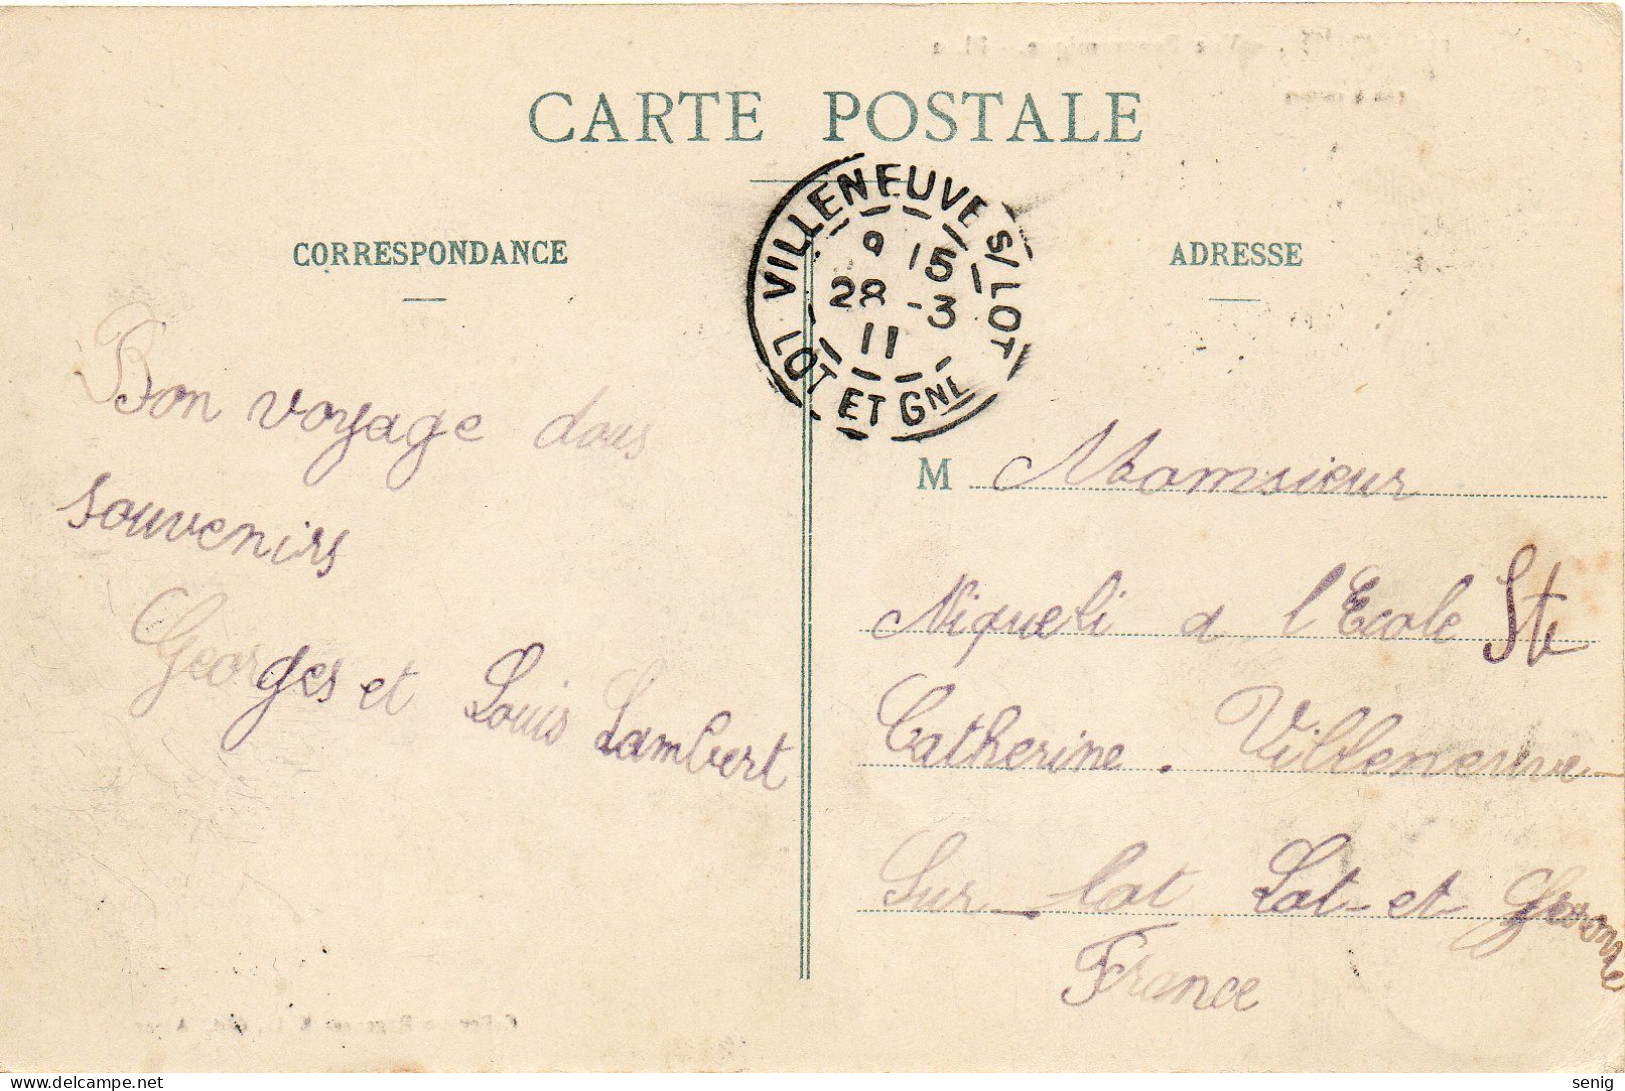 CARTE POSTALE
CORRESPONDANCE
ADRESSE
VILLENEUVE S/ LOT
9 15
28 -3
11
LOT ET GNE
Bon voyage dous
souvenirs
Georges et Louis Lambert
M Monsieur
Niqueli a l'Ecole Ste
Catherine. Villeneuve-
Sur-lot Lot-et Geronne
France
delcampe.net
senig